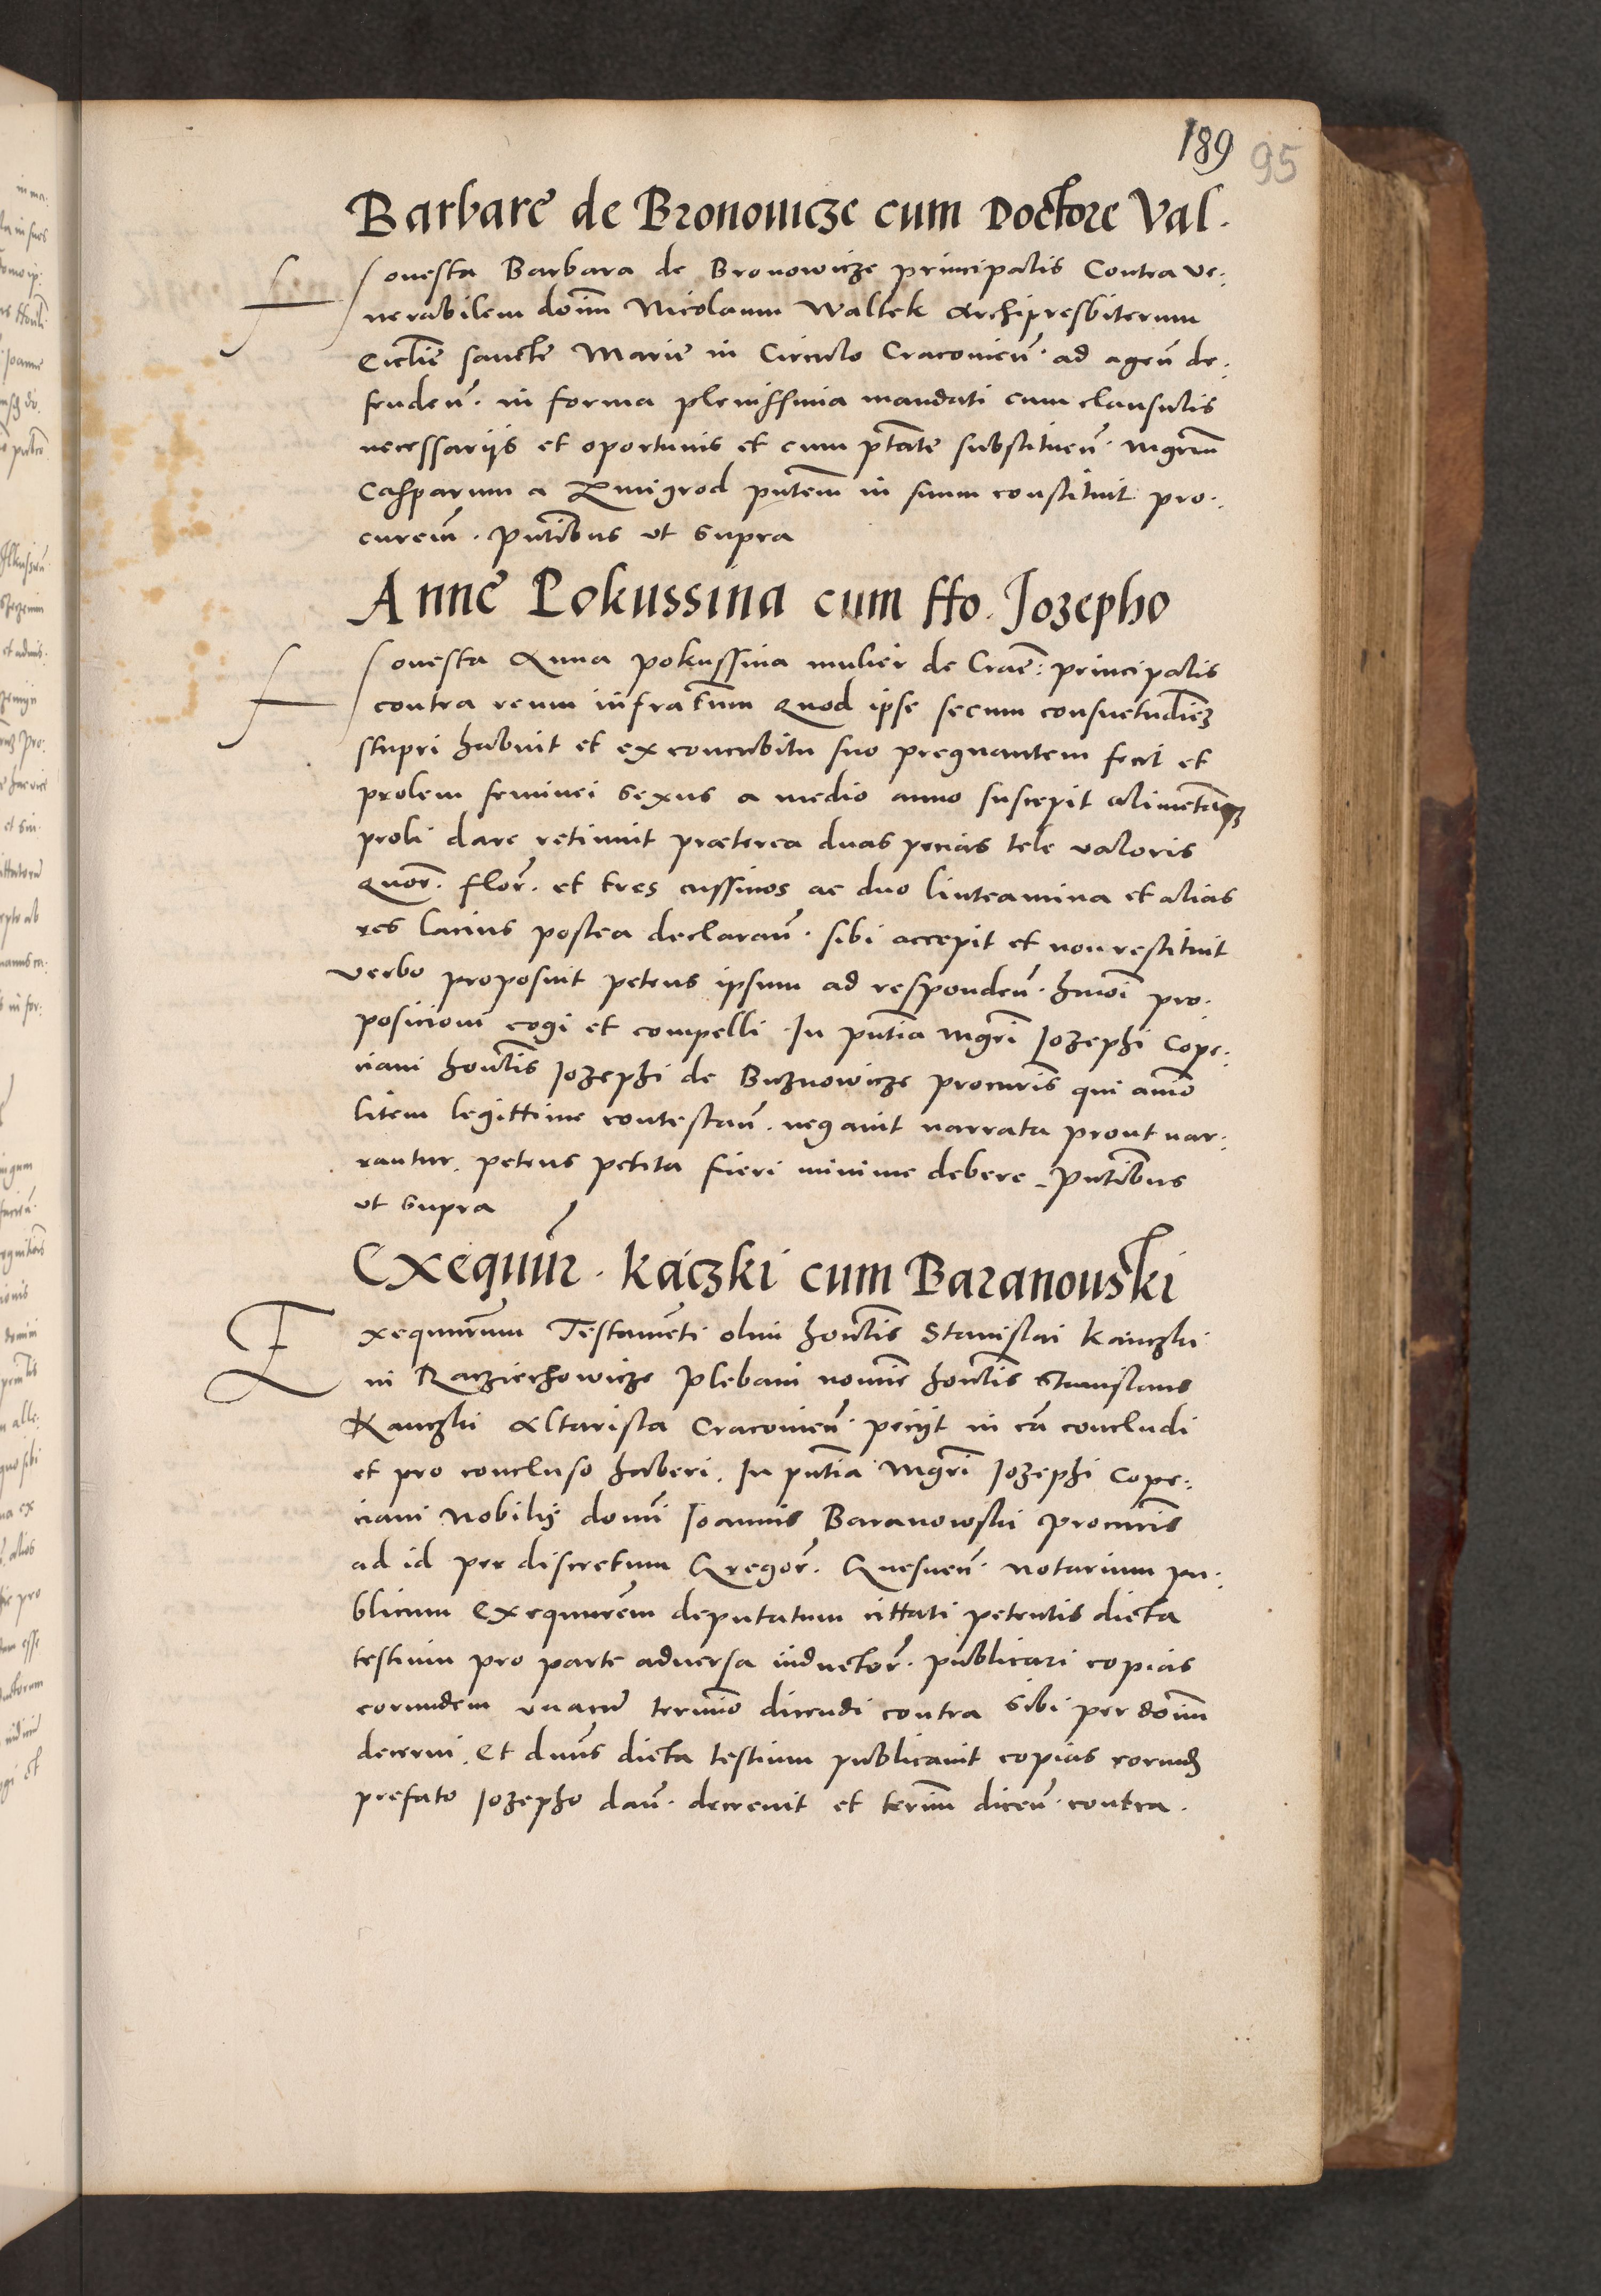 189 95
Barbare de Bronowicze cum Doctore Val.
Honesta Barbara de Bronowicze principalis Contra ve:
nerabilem dom̃ Nicolaum Waltek Archipresbiterum
Ecclie sancte Marie in Circulo Cracovien̄. ad agen̄ de:
fenden̄. in forma plenissima mandati cum clausulis
necessariis et oportunis et cum ptãte substituen̄. Mgrm̃
Casparum a Zmigrod pñtem in suum constituit pro:
curem̃. Pñtibus ut supra
Anne Pokussina cum ffo. Jozepho
Honesta Anna pokussina mulier de Crac̃: principalis
contra reum infractum Quod ipse secum consuetudiẽz
stupri habuit et ex concubitu suo pregnantem fecit et
prolem feminei sexus a medio anno suscepit alimẽtaqz
proli dare retinuit præterea duas pecias tele valoris
Quor̃. flor̃. et tres cussinos ac duo linteamina et alias
res lacius postea declaran̄. sibi accepit et non restituit
verbo proposuit petens ipsum ad responden̄. hmõi pro:
posicioni cogi et compelli. In pñtia Mgri Jozephi Cope:
ciani honẽtis Jozephi de Buznowicze procuris qui animo
litem legittime contestan̄. negavit narrata prout nar:
rantur. petens petita fieri minime debere. Pñtibus
ut supra
Exequur̃. Kaczki cum Baranowski
Exequutorum Testamenti olim honẽtis Stanislai Kaiczki
in Racziechowicze Plebani nomie honẽtis Stanislaus
Kanczki Altarista Cracovien̄. peciit in cã concludi
et pro concluso haberi. In pñtia Mgri Jozephi Cope:
ciani Nobilis domi Joannis Baranowski Procuris
ad id per discretum Gregor̃. Gnesnen̄. notarium pu:
blicum Exequurem deputatum cittati petentis dicta
testium pro parte adversa inductor̃. publicari copias
eorundem unacum termio dicendi contra sibi per dom̃
decerni. Et dnus dicta testium publicavit copias eorund̃
prefato Jozepho dan̄. decrevit et term̃ dicen̄. contra.